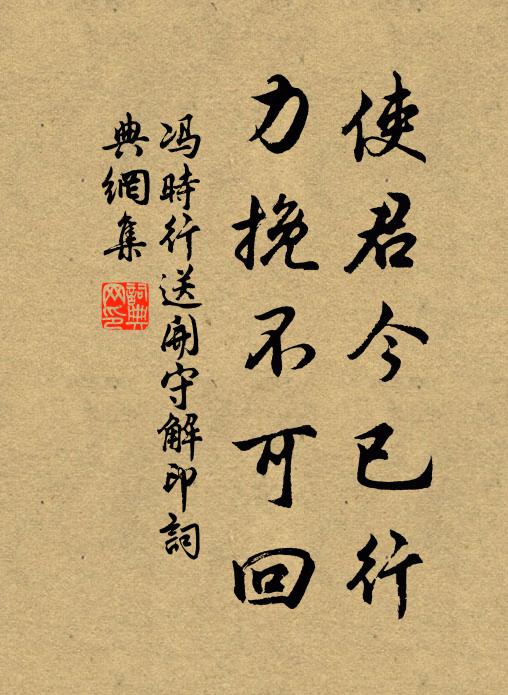 使君今已行
力挽不可回
冯時行送開守解印詞
典網集
詞典网印